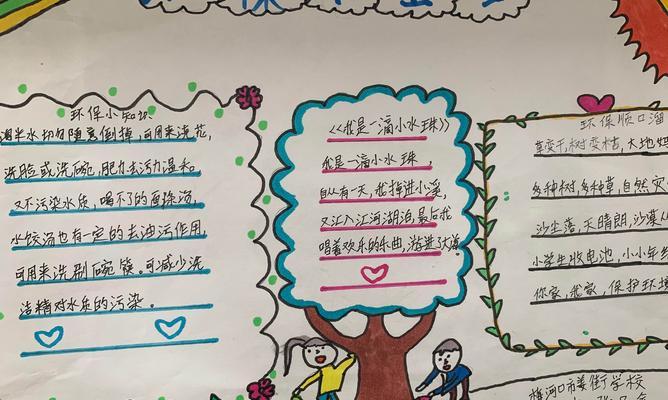 环保小知识
温半水切勿随意倒掉,可用来浇花,
洗脸或洗碗,肥力去污力温和
又不污染水质,喝不了的面珠汤,
水饺汤也有一定的去油污作用,
可用来洗刷碗筷。可减少洗
洁精对水质的污染。
《我是一滴小水珠》
我是一滴小水珠,
自从有一天,我掉进小溪,
又汇入江河湖泊,最后我
唱着欢乐的乐曲,游进了大海。
环保顺口溜
草变干,树变枯,大地
多种树,多种草,自然灾
沙尘落,天晴朗,沙漠
小学生收电池,小小年
你家,我家,保护环境
梅河口市姜街学校